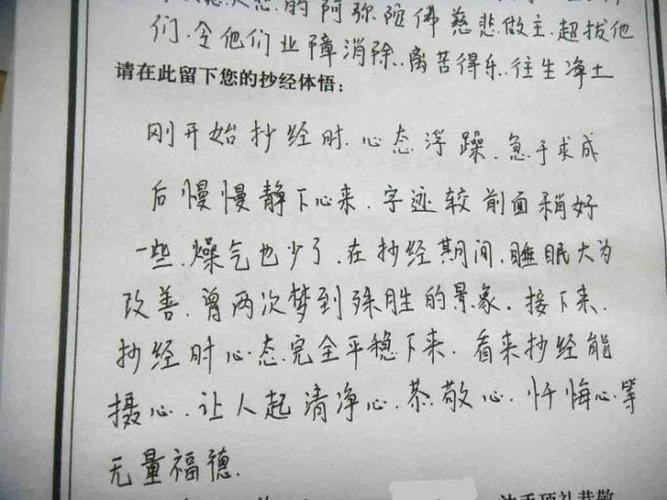 的阿弥陀佛慈悲做主.超拔他
们.令他们业障消除.离苦得乐.往生净土
请在此留下您的抄经体悟：
刚开始抄经时.心态浮躁.急于求成
后慢慢静下心来.字迹较前面稍好
一些.燥气也少了.在抄经期间.睡眠大为
改善.曾两次梦到殊胜的景象.接下来.
抄经时心态完全平稳下来.看来抄经能
摄心.让人起清净心.恭敬心.忏悔心等
无量福德.